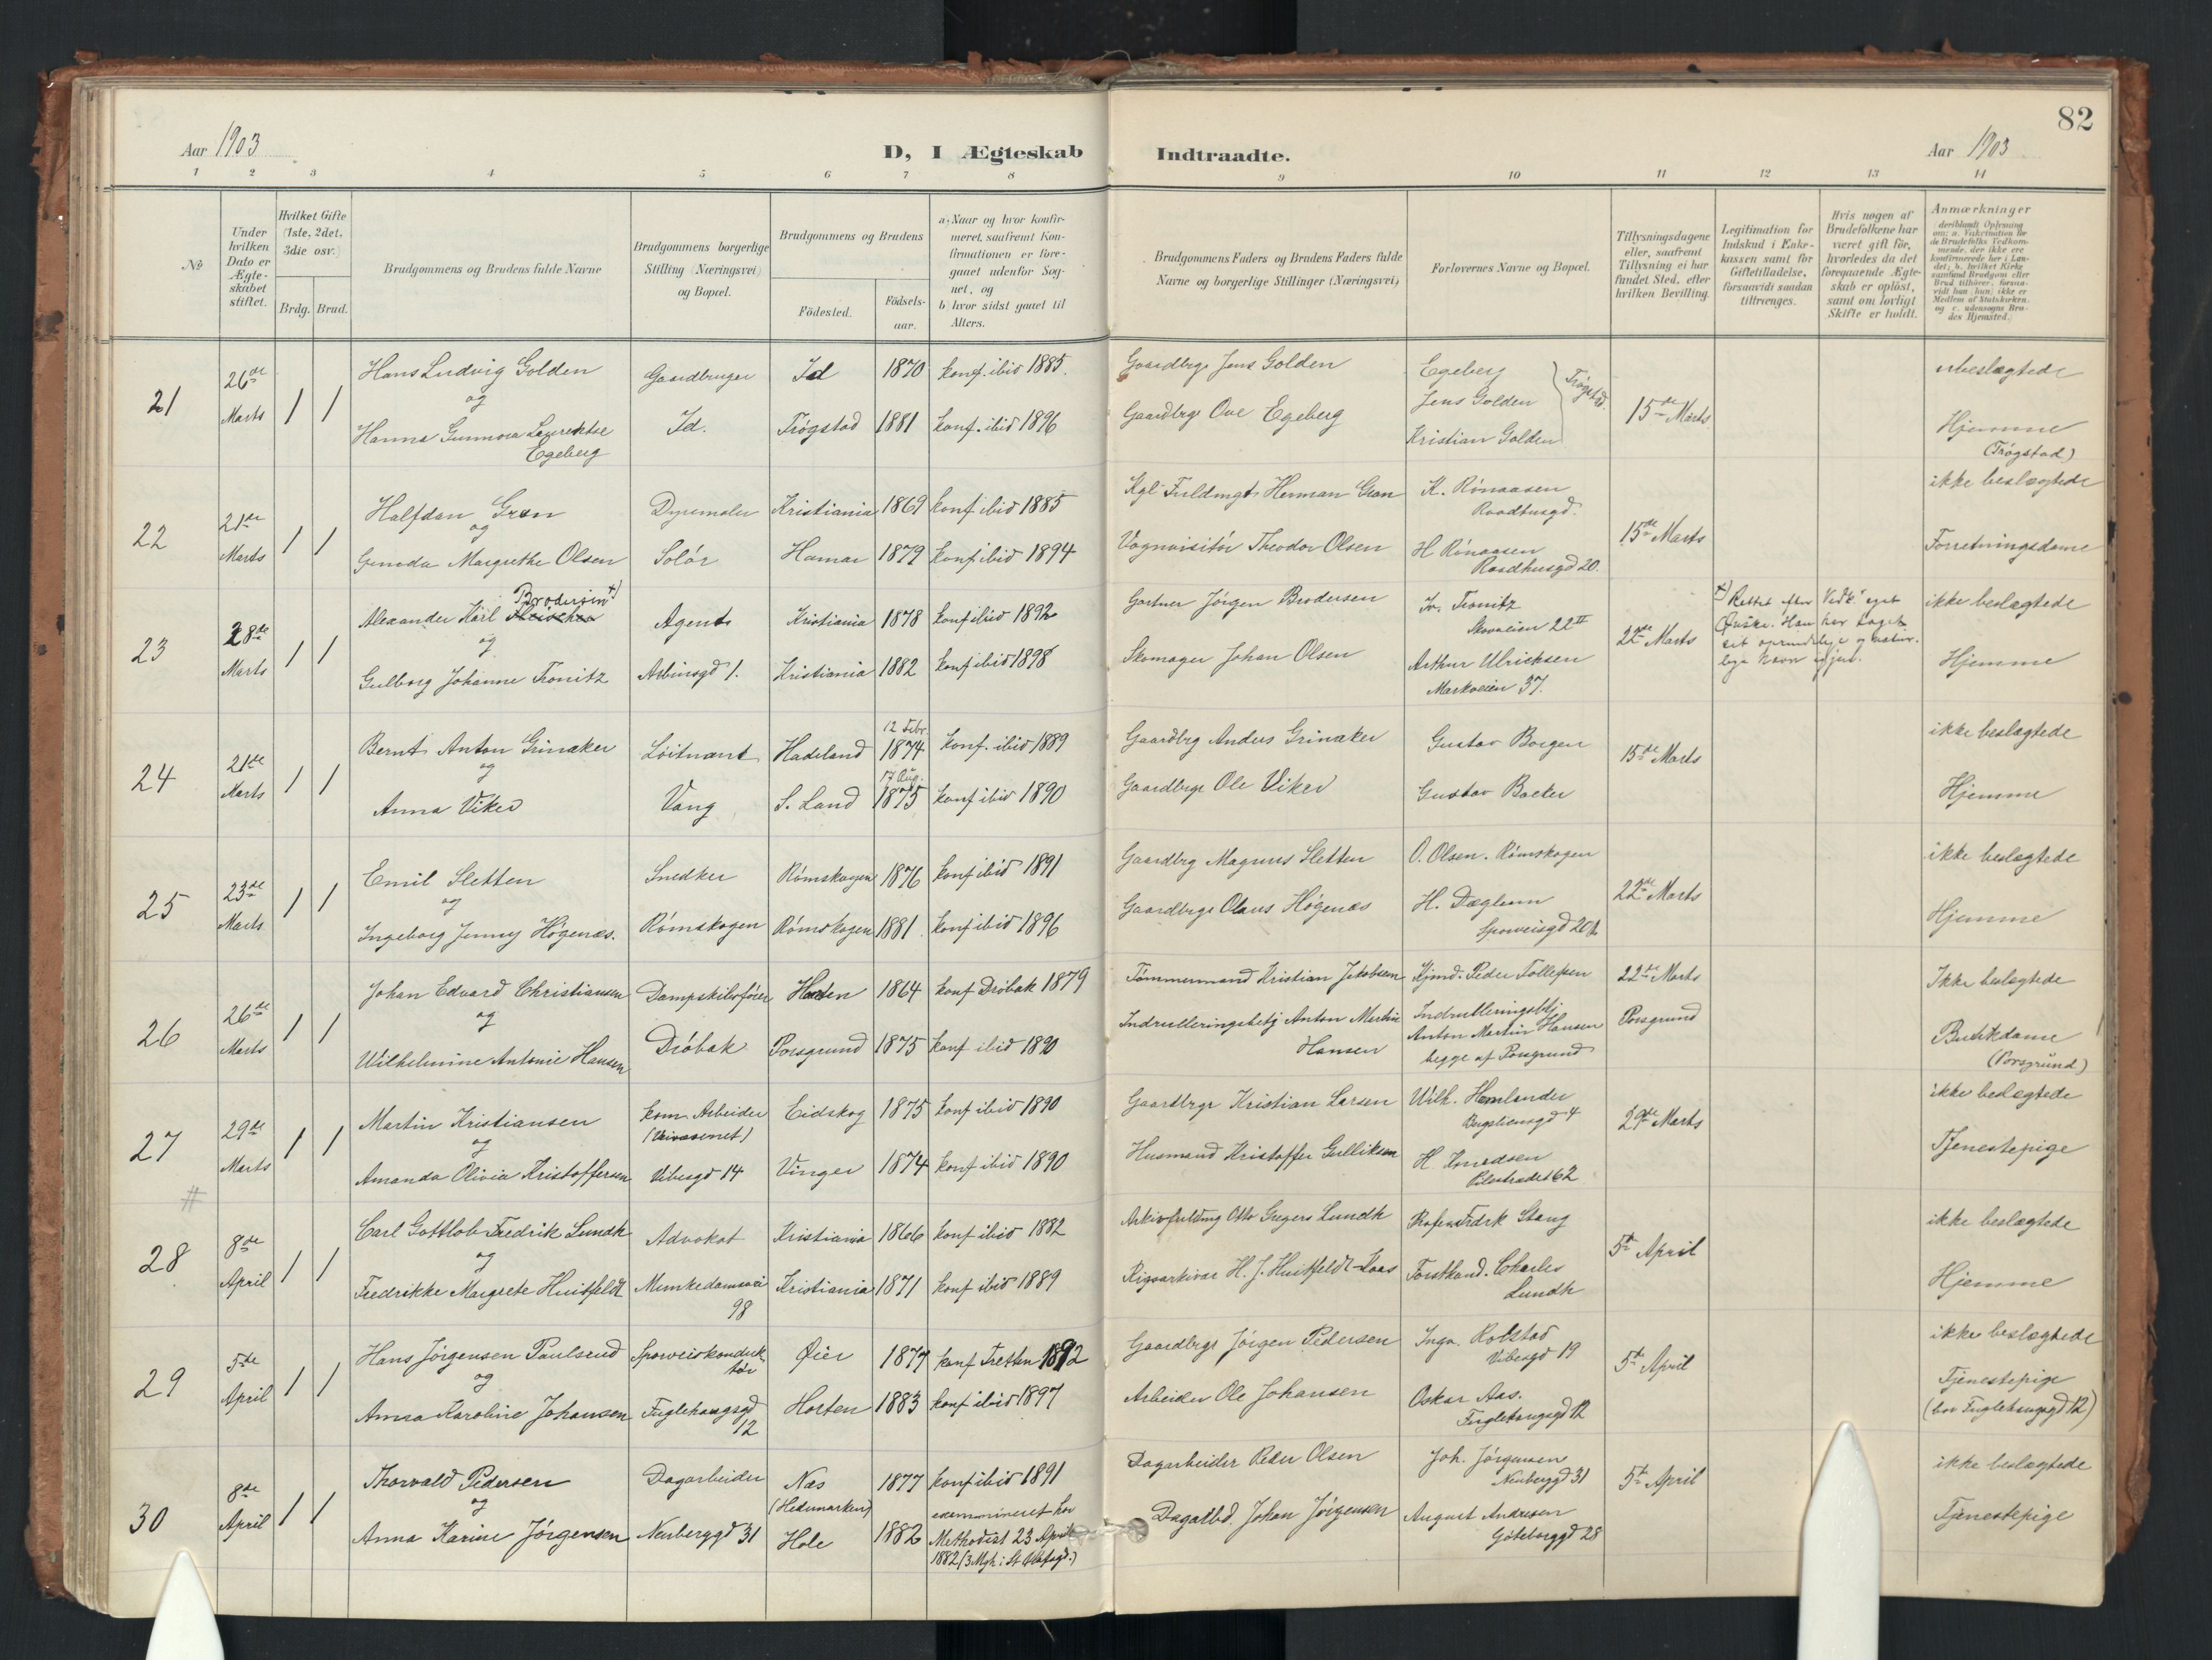 82
Aar 1903
D, I Ægteskab Indtraadte.
Aar 1903
1 2 3 4 5 6 7 8 9 10 11 12 13 14
№
Under hvilken Dato er Ægteskabet stiftet.
Hvilket Gifte (1ste, 2det, 3die osv.)
Brdg. Brud.
Brudgommens og Brudens fulde Navne
Brudgommens borgerlige Stilling (Næringsvei) og Bopæl.
Brudgommens og Brudens
Födested.
Födselsaar.
a) Naar og hvor konfirmeret, saafremt Konfirmationen er foregaaet udenfor Sognet, og
b) hvor sidst gaaet til Alters.
Brudgommens Faders og Brudens Faders fulde Navne og borgerlige Stillinger (Næringsvei)
Forlovernes Navne og Bopæl.
Tillysningsdagene eller, saafremt Tillysning ei har fundet Sted, efter hvilken Bevilling.
Legitimation for Indskud i Enkekassen samt for Giftetilladelse, forsaavidt saadan tiltrænges.
Hvis nogen af Brudefolkene har været gift för, hvorledes da det foregaaende Ægteskab er oplöst, samt om lovligt Skifte er holdt.
Anmærkninger
(deriblandt Oplysning om: a. Vakcination for de Brudefolks Vedkommende, der ikke ere konfirmerede her i Landet; b. hvilket Kirkesamfund Brudgom eller Brud tilhörer, forsaavidt han (hun) ikke er Medlem af Statskirken. og c. udensogns Brudes Hjemsted.)
21 26de Marts 1 1
Hans Ludvig Golden
og
Hanna Gunnora
Egeberg
Gaardbruger
Id.
Id 1870 konf. ibid 1885.
Trøgstad 1881 konf. ibid 1896
Gaardbrgr Jens Golden
Gaardbrgr Ove Egeberg
Egeberg
Jens Golden
Kristian Golden
Trøgstad.
15de Marts
ubeslægtede
Hjemme
(Trøgstad)
22 21de Marts 1 1
Halfdan Gran
og
Margrethe Olsen
Dyremaler
Solör
Kristiania 1869 konf ibid 1885
Hamar 1879 konf ibid 1894
Kgl Fuldmgt Herman Gran
Vognvisitör Theodor Olsen
K. Rönaasen
Raadhusgd.
H Rönaasen
Raadhusgd 20.
15de Marts
ikke beslægtede
Forretningsdame
23 28de Marts 1 1
Brodersen x)
Alexander Karl
og
Gulborg Johanne Tronitz
Agent
Arbinsgd 1.
Kristiania 1878 konf ibid 1892
Kristiania 1882 konf ibid 1898
Gartner Jörgen Brodersen
Skomager Johan Olsen
Tronitz
Skovveien 22 II
Arthur Ulricksen
Markveien 37.
22de Marts
x) Rettet efter Vedk. eget
Ønske. Han har taget
sit oprindelige og
lige Navn igjen.
ikke beslægtede
Hjemme
24 21de Marts 1 1
Bernt Anton Grinaker
og
Anna Viker
Löitnant
Vang
Hadeland 12 Febr. 1874 konf. ibid 1889
S. Land 17 Aug. 1875 konf ibid 1890
Gaardbrg Anders Grinaker
Gaardbrgr Ole Viker
Gustav Borgen
Gustav Backer
15de Marts
ikke beslægtede
Hjemme
25 23de Marts 1 1
Emil Sletten
og
Ingeborg Jenny Högenæs.
Snedker
Römskogen
Römskogen 1876 konf ibid 1891
Römskogen 1881 konf ibid 1896
Gaardbrg Magnus Sletten
Gaardbrgr Olaus Högenæs
O. Olsen. Römskogen
H. Dæglum
Sporveisgd 20
22de Marts
ikke beslægtede
Hjemme
26 26de Marts 1 1
Johan Edvard Christiansen
og
Wilhelmine Antonie Hansen
Dampskibsförer
Dröbak
1864 konf Dröbak 1879
Porsgrund 1875 konf ibid 1890
Tömmermand Kristian Jakobsen
Indrulleringsbetj Anton Martin
Hansen
Kjmd. Peder Tollefsen
Indrulleringsbtj
Anton Martin Hansen
begge af Porsgrund
22de Marts
Porsgrund
Ikke beslægtede
Butikdame
(Porsgrund)
27 29de Marts 1 1
Martin Kristiansen
og
Amanda Olivia Kristoffersen
kom. Arbeider
(Veivæsenet)
Vibesgd 14
Eidskog 1875 konf ibid 1890
Vinger 1874 konf ibid 1890
Gaardbrgr Kristian Larsen
Husmand Kristoffer Gulliksen
Wilh. Hemlander
Bergsliensgd 4
H. Knudsen
Pilestrædet 62
29de Marts
ikke beslægtede
Tjenestepige
#
28 8de April 1 1
Carl Gottlob Fredrik Lundh
og
Fredrikke Margrete Huitfeldt
Advokat
Munkedamsvei
98
Kristiania 1866 konf ibid 1882
Kristiania 1871 konf ibid 1889
Arkivfuldmg Otto Gregers Lundh
Rigsarkivar H. J. Huitfeldt-Kaas
Profess Fredrk Stang
Forstkand. Charles
Lundh
5te April
ikke beslægtede
Hjemme
29 5de April 1 1
Hans Jörgensen Paulsrud
og
Anna Karoline Johansen
Sporveiskonduk-
tör
Fuglehaugsgd
12
Øier 1877 konf Tretten 1892
Horten 1883 konf ibid 1897
Gaardbrgr Jörgen Pedersen
Arbeider Ole Johansen
Inga. Rolstad
Vibesgd 19
Oskar Aas.
Fuglehaugsgd 12
5te April
ikke beslægtede
Tjenestepige
(bor Fuglehaugsgd 12)
30 8de April 1 1
Thorvald Pedersen
og
Anna Karine Jörgensen
Dagarbeider
Neuberggd 31
Næs 1877 konf ibid 1891
(Hedemarken)
Hole 1882
hos
Methodist 23 April
1882 (3 Mgh: St Olafsgd.)
Dagarbeider Peder Olsen
Dagarbd. Johan Jörgensen
Joh. Jörgensen
Neuberggd 31
August Andresen
Göteborggd 28
5te April
ikke beslægtede
Tjenestepige